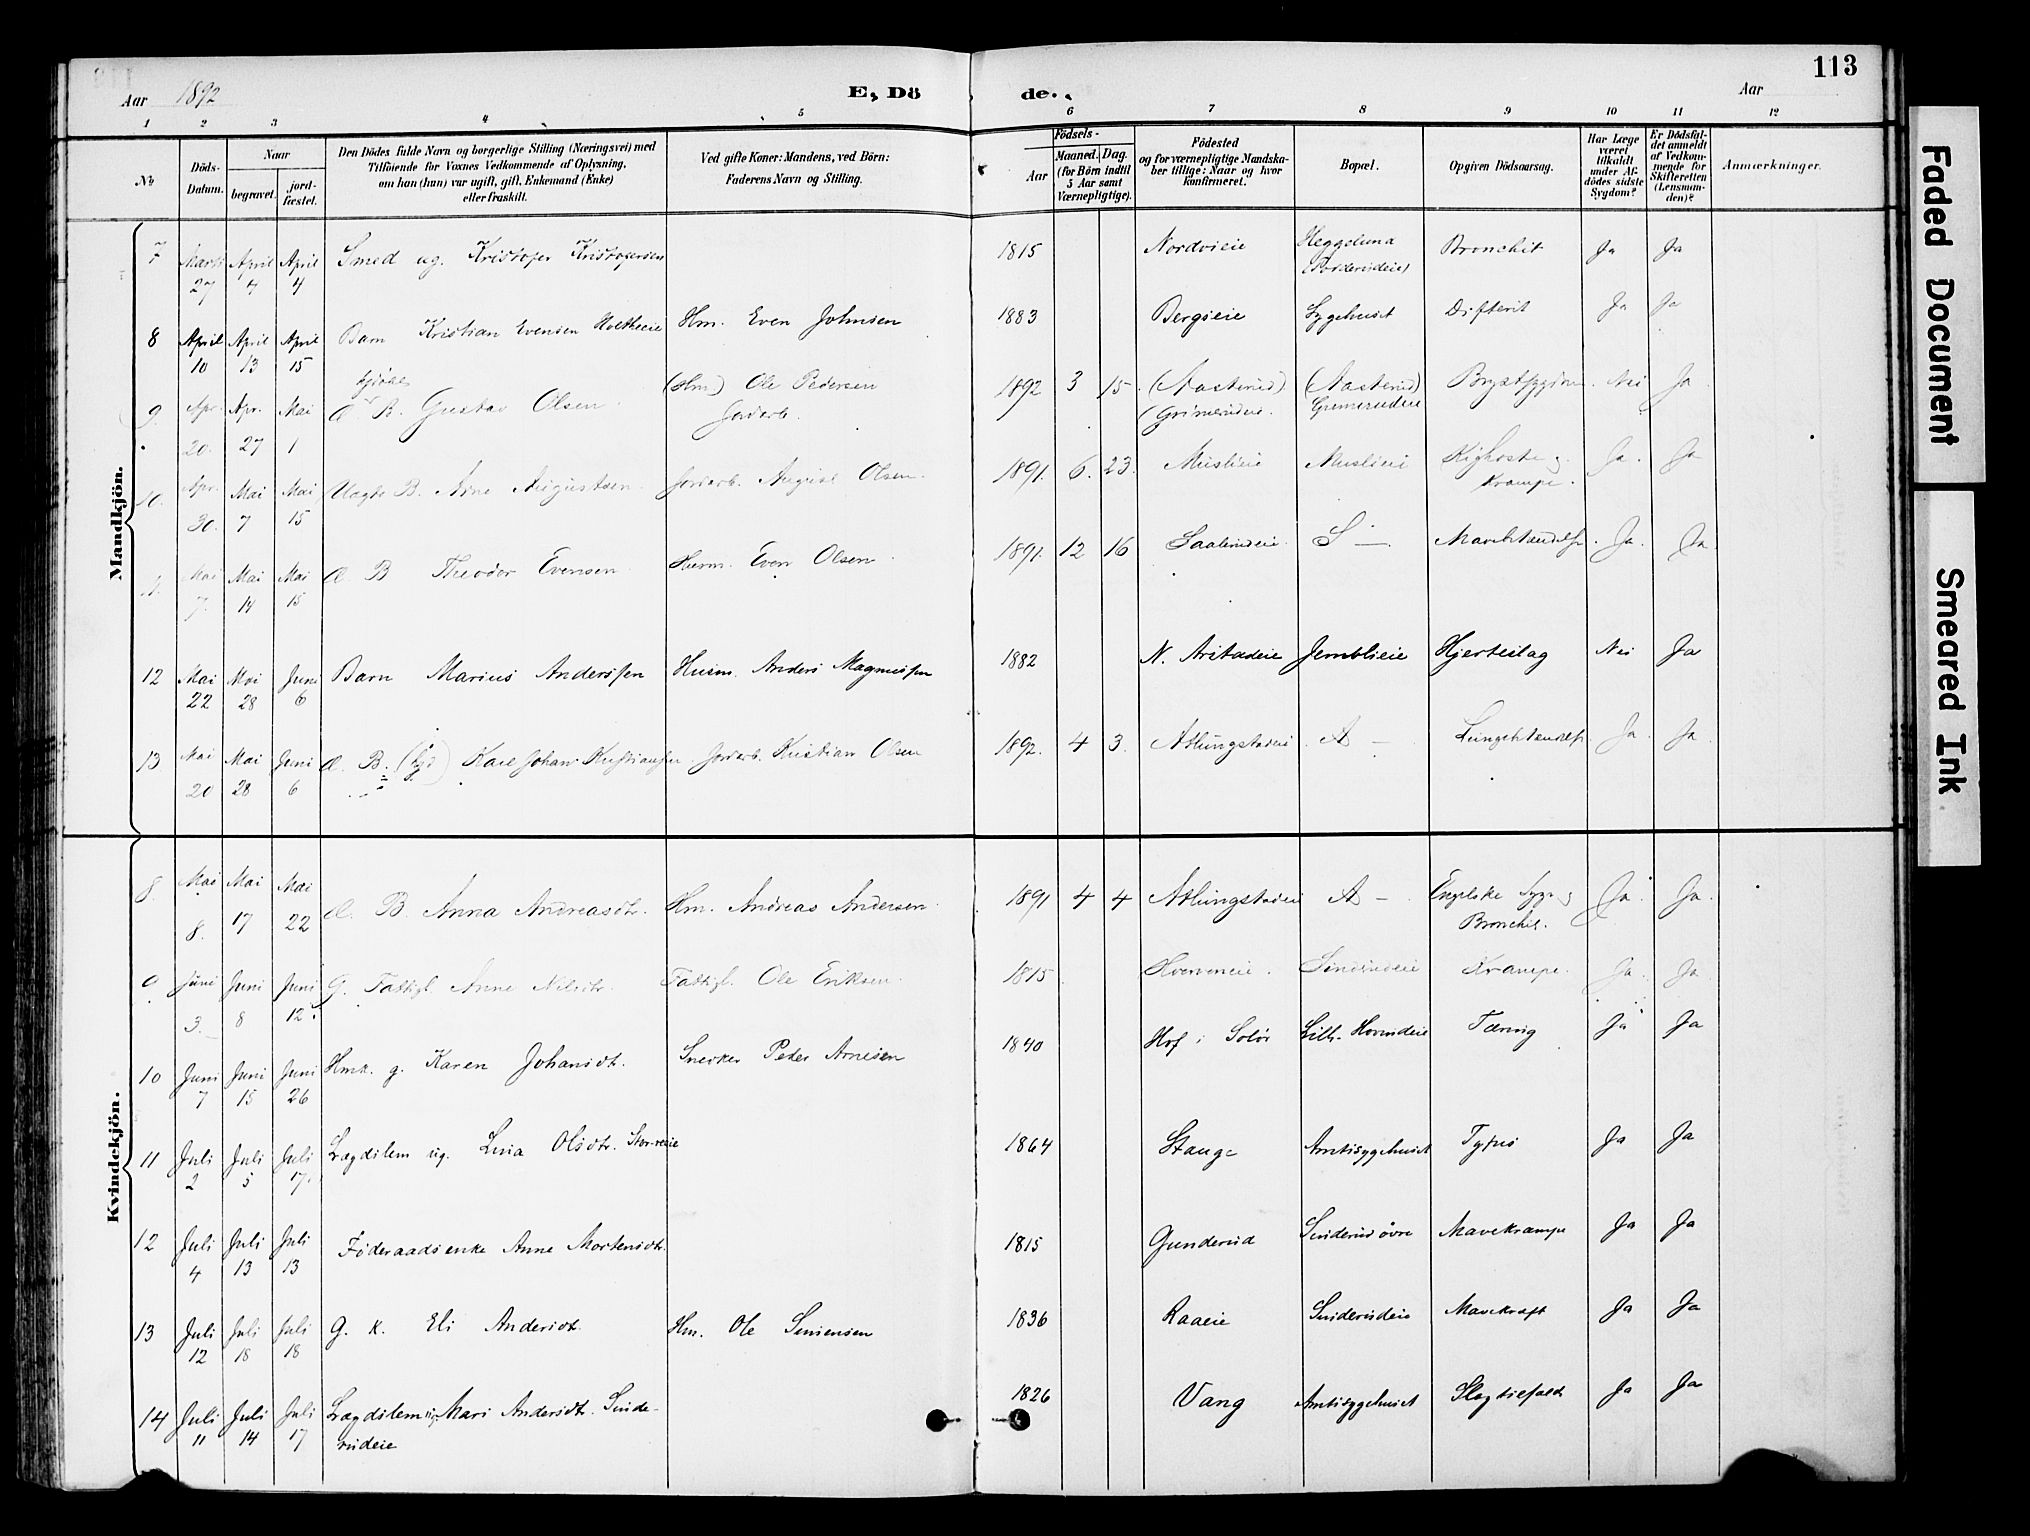 113
Aar 1892 E, Dö de. Aar
1 2 3 4 5 6 7 8 9 10 11 12
No
Döds-Datum.
Naar
begravet.
jord-fæstet.
Den Dödes fulde Navn og borgerlige Stilling (Næringsvei) med
Tilföiende for Voxnes Vedkommende af Oplysning,
om han (hun) var ugift, gift, Enkemand (Enke)
eller fraskilt.
Ved gifte Koner: Mandens, ved Börn:
Faderens Navn og Stilling.
Födsels-
Aar
Maaned. Dag.
(for Börn indtil
5 Aar samt
Værnepligtige).
Födested
og for værnepligtige Mandska-
ber tillige: Naar og hvor
konfirmeret.
Bopæl.
Opgiven Dödsaarsag.
Har Læge
været
tilkaldt
under Af-
dödes sidste
Sygdom?
Er Dödsfal-
det anmeldt
af Vedkom-
mende for
Skifteretten
(Lensman-
den)?
Anmærkninger.
Mandkjön.
7 Marts 27 April 4 April 4 Smed ug. Kristofer Kristofersen 1815 Nordvieie Heggelund Bronchit Ja Ja
8 April 10 April 13 April 15 Barn Kristian Evensen Hm. Even Johnsen 1883 Bergseie Sygehuset Difterit Ja Ja
9. Apr. 20. Apr. 27 Mai 1 Æ B. Gustav Olsen (Hm.) Ole Pedersen Jordarb. 1892 3 15. (Aasterud) (Grimerudeie. (Aasterud) Grimerudeie Brystsygdom Nei Ja
10. Apr. 30. Mai 7 Mai 15 Uægte B. Arne Augustsen Jordarb. August Olsen. 1891. 6. 23. Muslieie Muslieie Kighoste og Krampe. Ja. Ja
11. Mai 7. Mai 14 Mai 15 Æ. B Theodor Evensen Husm. Even Olsen 1891. 12 16 Saalerudeie S — Ja. Ja.
12 Mai 22 Mai 28 Juni 6 Barn Marius Anderssen Husm. Anders Magnussen 1882 N. Arstadeie Jemblieie Hjerteslag Nei Ja
13 Mai 20 Mai 28 Juni 6 Æ. B. Karl Johan Kristiansen Jordarb. Kristian Olsen 1892. 4 3. Atlungstadeie A — Lungebetændelse Ja Ja.
Kvindekjön.
8. Mai 8. Mai 17 Mai 22 Æ. B. Anna Andreasdtr. Hm. Andreas Andersen 1891 4 4 Atlungstadeie A — Engelske Syge og Bronchit. Ja. Ja.
9 Juni 3. Juni 8 Juni 12. G. Fattigl. Anne Nilsdtr. Fattigl. Ole Eriksen. 1815 Sinderudeie Krampe. Ja. Ja.
10 Juni 7 Juni 15 Juni 26 Hmk. g. Karen Johansdt. Snedker Peder Arnesen 1840 Hof i Solör Lille-Hovindeie Tæring Ja Ja
11 Juli 2 Juli 5 Juli 17. Lægdslem ug. Lina Olsdtr. 1864 Stange Amtssygehuset Tyfus Ja Ja
12 Juli 4 Juli 13 Juli 13 Föderaadsenke Anne Mortensdtr. 1815 Gunderud Sinderud övre Mavekrampe Ja Ja
13 Juli 12 Juli 18 Juli 18 G. k. Eli Andersdt. Hm. Ole Simensen 1836 Raaeie Sinderudeie Mavekræft Ja Ja
14 Juli 11 Juli 14 Juli 17 Lægdslem ug. Mari Andersdt. Sinde-
rudeie 1826 Vang Amtssygehuset Slagtilfælde Ja Ja
Faded Document
Smeared Ink